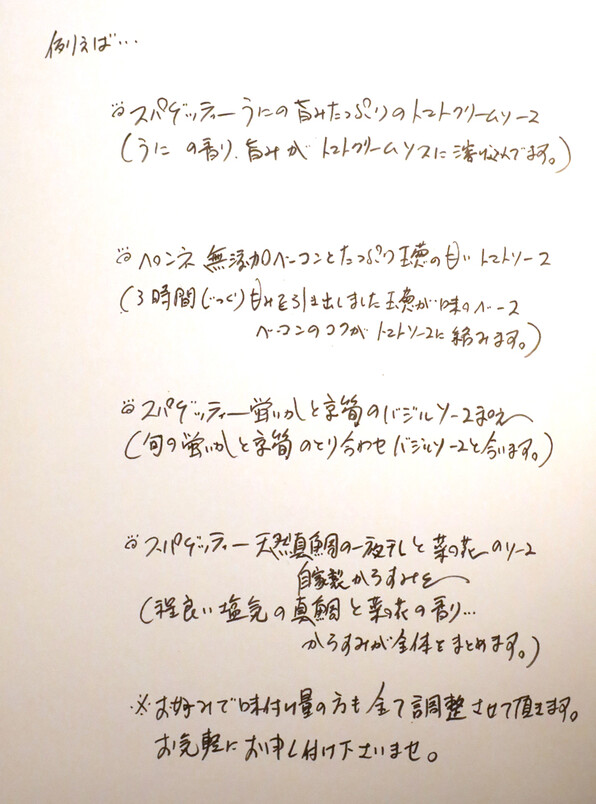 例えば…
スパゲッティーうにの旨みたっぷりのトマトクリームソース
(うに の香り、旨みが トマトクリームソースに溶け込んでます。)
ペンネ 無添加ベーコンとたっぷり玉葱の甘いトマトソース
(3時間じっくり甘みを引き出しました玉葱が味のベース
ベーコンのコクがトマトソースに絡みます。)
スパゲッティー蛍いかと京筍のバジルソースまぜ
(旬の蛍いかと京筍のとり合わせ バジルソースと合います。)
スパゲッティー 天然真鯛の一夜干しと菜の花のソース
自家製からすみを
(程良い塩気の真鯛と菜の花の香り…
からすみが全体をまとめます。)
※お好みで味付け量の方も全て調整させて頂きます。
お気軽にお申し付け下さいませ。